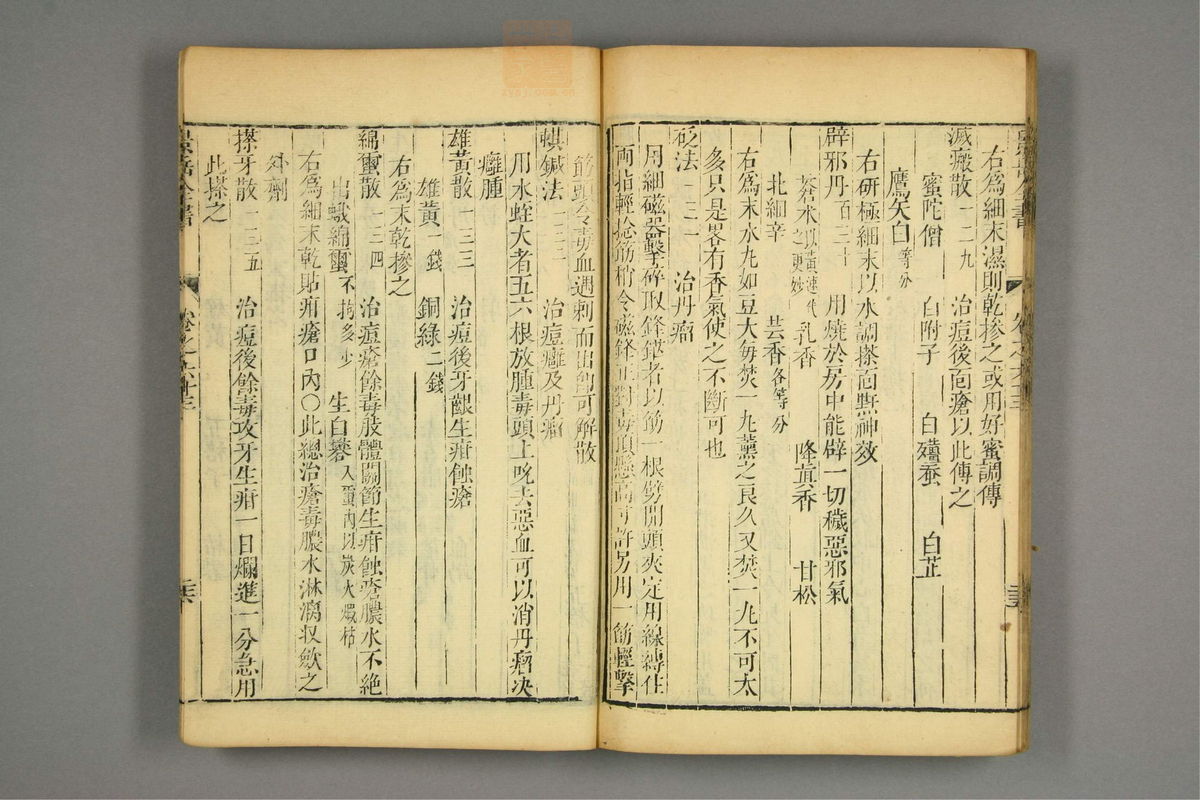 右為細末濕則乾摻之或用好蜜調傅
滅瘢散 一二九 治痘後靣瘡以此傅之
蜜陀僧 白附子 白殭蚕 白芷
鷹矢白 等分
右研極細末以水調搽靣㸃神效
辟邪丹 百三十 用燒於房中能辟一切穢惡邪氣
蒼朮 以黃連代之更妙 乳香 降眞香 甘松
北細辛 芸香 各等分
右為末水丸如豆大每焚一丸薰之良久又焚一丸不可太
多只是畧有香氣使之不斷可也
砭法 一三一 治丹瘤
用細磁器擊碎取鋒鋩者以筯一根劈開頭夾定用線縛住
両指輕捻筯稍令磁鋒正對毒頂懸高寸許另用一筯輕擊
筯頭令毒血遇刺而出卽可解散
蜞鍼法 一三二 治痘癰及丹瘤
用水蛭大者五六根放腫毒頭上吮去惡血可以消丹瘤决
癰腫
雄黃散 一三三 治痘後牙齦生疳蝕瘡
雄黃 一錢 銅綠 二錢
右為末乾摻之
綿蠒散 一三四 治痘瘡餘毒肢體關節生疳蝕瘡膿水不絕
出蛾綿蠒 不拘多少 生白礬 入蠒內以炭火煆枯
右為細末乾貼疳瘡口內○此總治瘡毒膿水淋漓収歛之
外劑
搽牙散 一三五 治痘後餘毒攻牙生疳一日爛進一分急用
此搽之